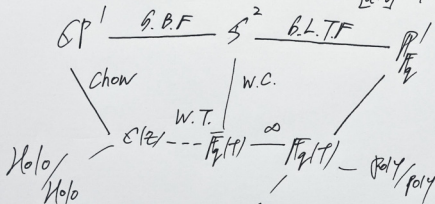 CP¹ S.B.F S² G.L.T.F P¹ Fq
Chow W.C.
W.T.
Holo/Holo C(z) --- Fq(t) ∞ Fq(t) — Poly/Poly